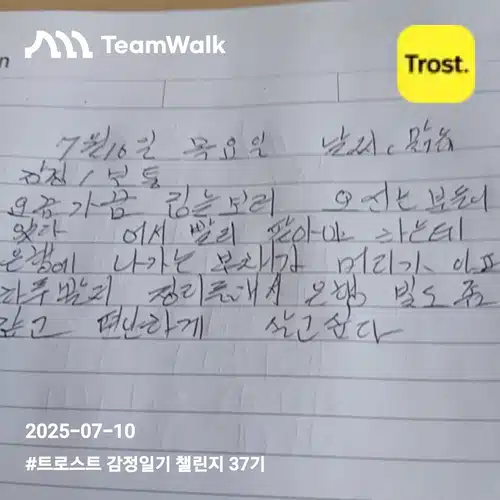 n TeamWalk
Trost.
7월10일 목요일 날씨, 맑음
감정 / 보통
요즘 가끔 집을보러 분들이
있다 어서 빨리 팔아야 하는데
은행에 나가는 부채가 머리가 아파
하루빨리 정리를해서 은행 빚도 좀
갚고 편안하게 살고싶다
2025-07-10
#트로스트 감정일기 챌린지 37기